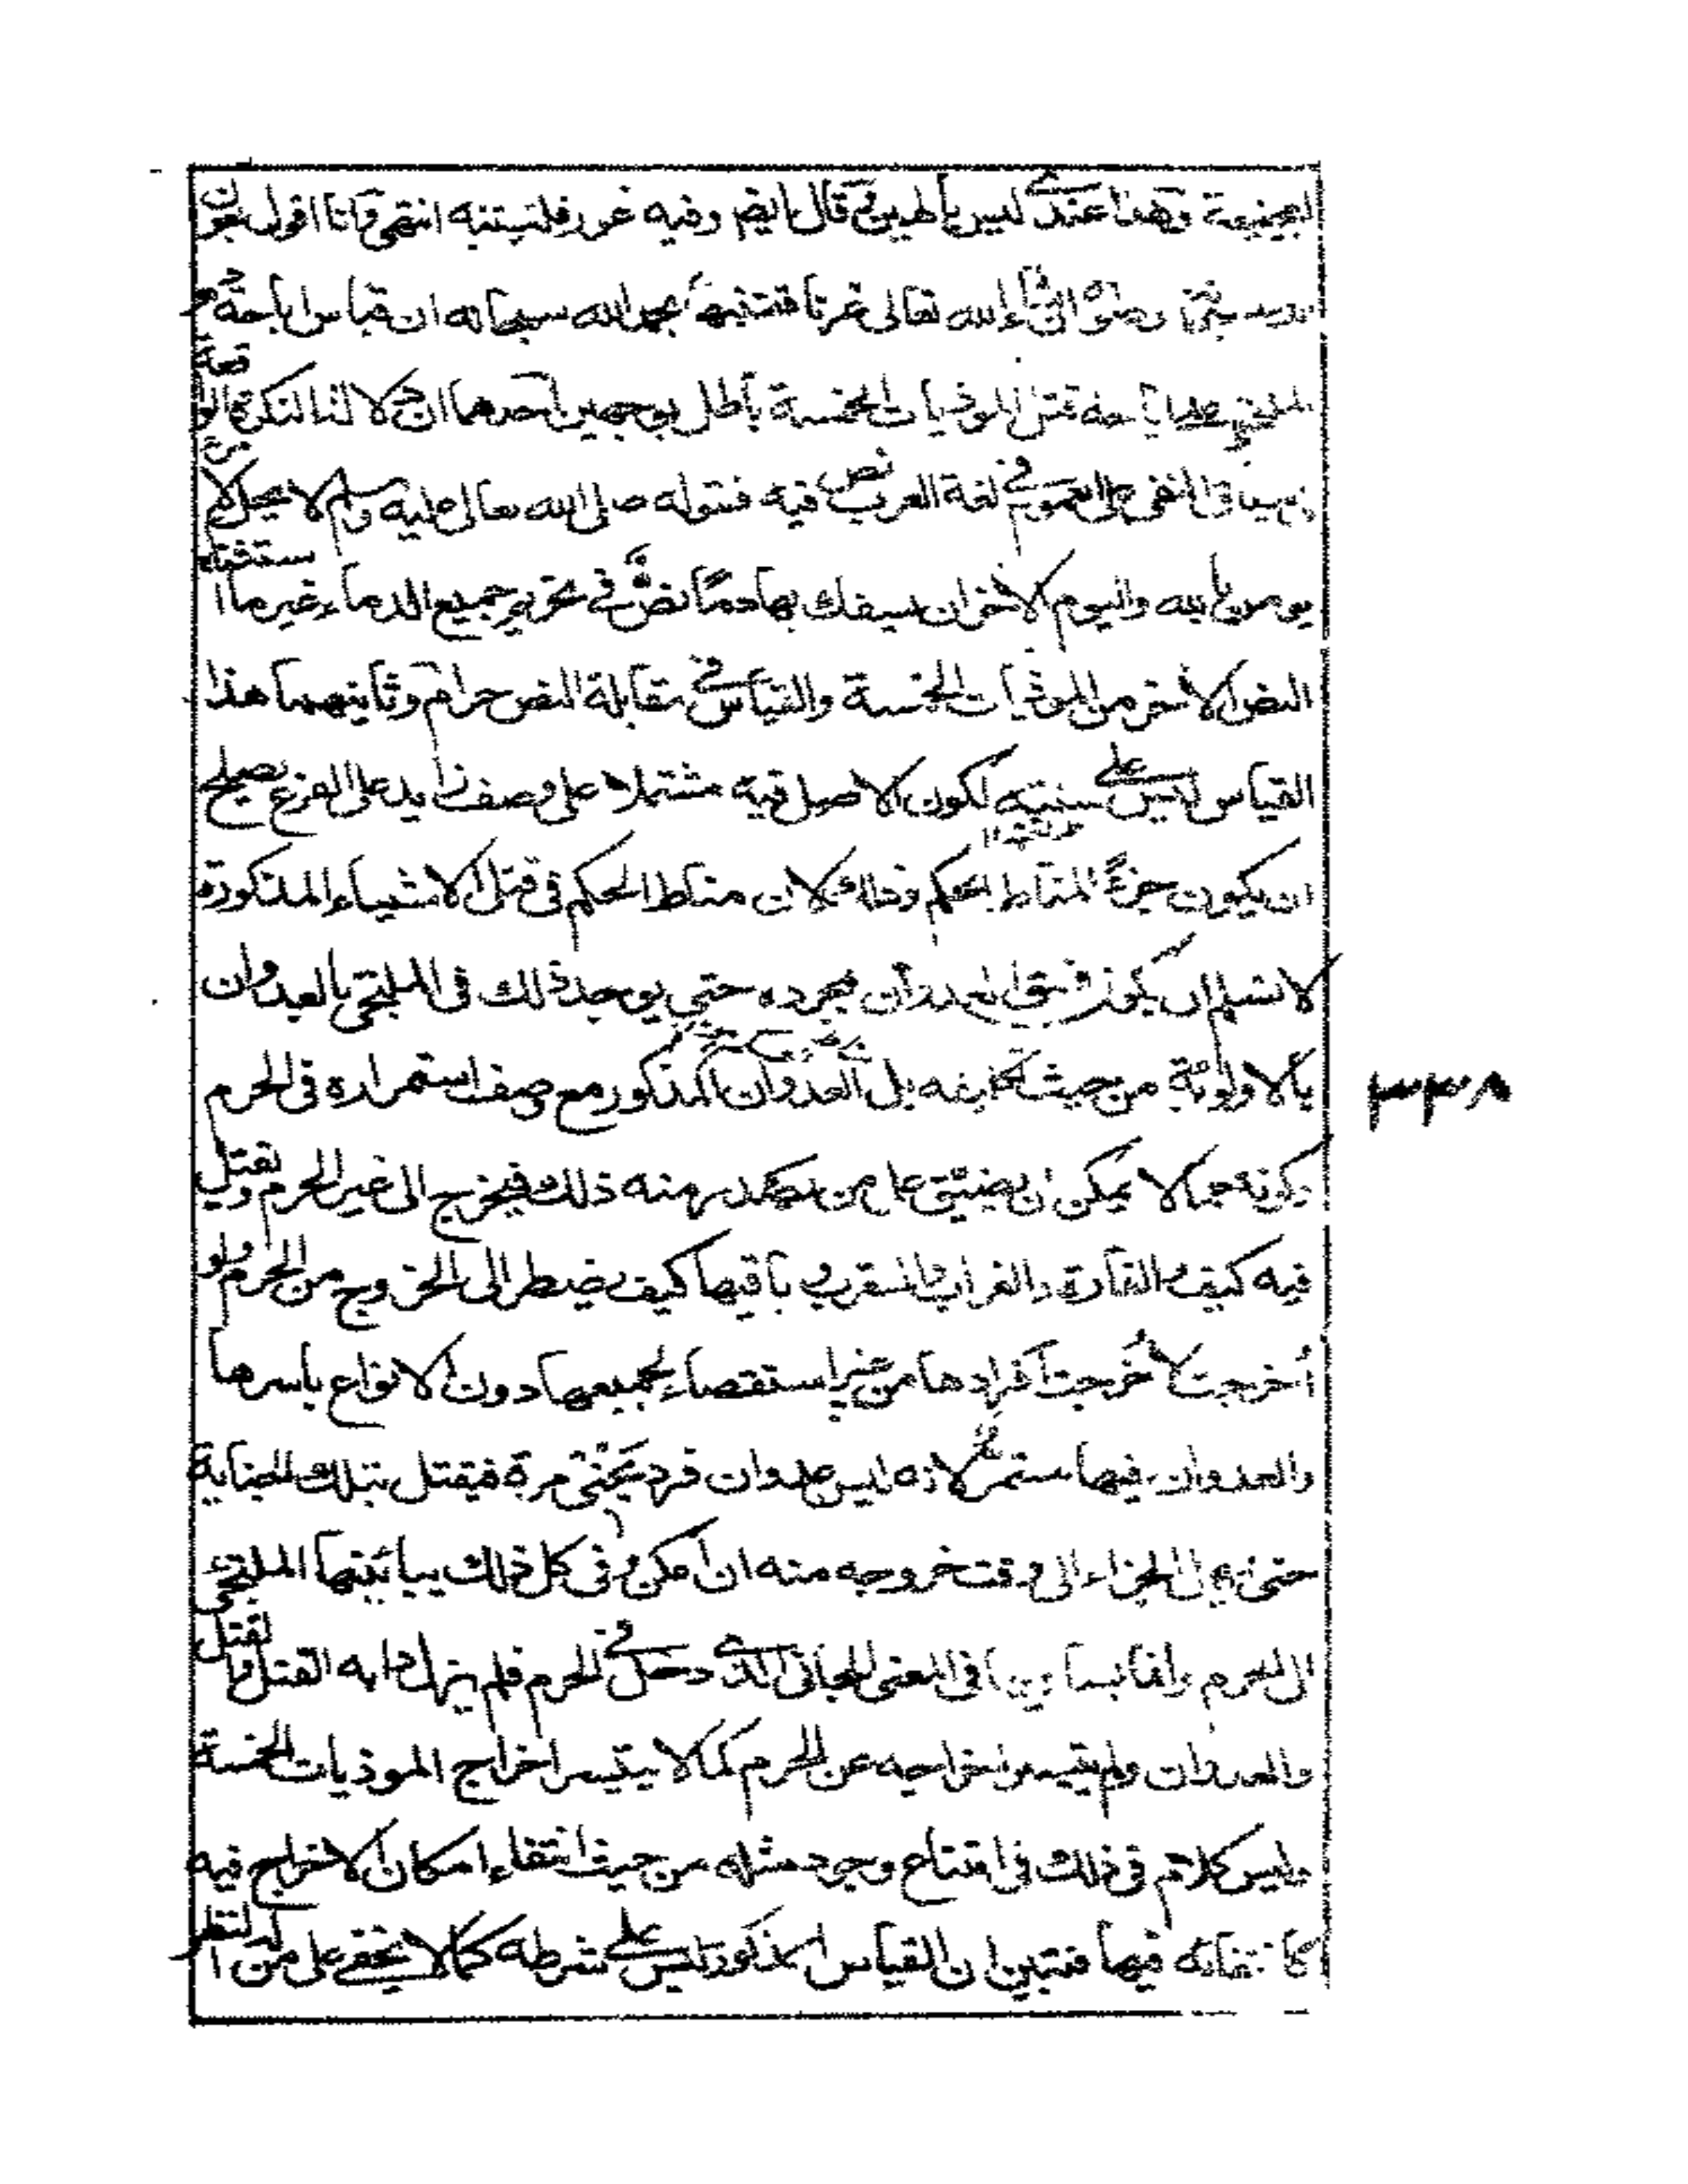 وهذا عندي ليس بالهين ثم قال ايضم وفيه غور فليتنبه انتهى وانا اقول بعون
ان شاء الله تعالى غرنا فتنبهنا بحمد الله سبحانه ان قياس اباحة دم
الملتجئ على اباحة قتل الموذيات الخمسة باطل بوجهين احدهما ان دلالة النكرة الواقعة
في سياق النفي على العموم في لغة العرب نص فيه فقوله صلى الله تعالى عليه وسلم لا يحل لامرئ
يومن بالله واليوم الاخر ان يسفك بها دمًا نصٌّ في تحريم جميع الدماء غير ما استثنته
النص الاخر من الموذيات الخمسة والقياس في مقابلة النص حرام وثانيهما هذا
القياس ليس على سننه لكون الاصل فيه مشتملا على وصف زايد على الفرع يصلح
ان يكون جزءً لمناط الحكم وذلك لان مناط الحكم في قتل الاشياء المذكورة
لا نسلم ان يكون العدوان بمجرده حتى يوجد ذلك في الملتجئ بالعدوان
بالاولوية من حيث بل العدوان المذكور مع وصف استمراره في الحرم
وكونه مما لا يمكن ان يضيق على من يصدر منه ذلك فيخرج الى غير الحرم ويقتل
فيه كيف والفارة والغراب والعقرب وباقيها كيف يضطر الى الخروج من الحرم ولو
أخرجت لأخرجت افرادها من غير استقصاء لجميعها دون الانواع باسرها
والعدوان فيها مستمر لانه ليس عدوان فرد يجني مرة فيقتل بتلك الجناية
حتى الجزاء الى وقت خروجه منه ان امكن وفي كل ذلك يباينها الملتجئ
الى الحرم وانما في المعنى الجاني الذي دخل في الحرم فلم يزل دابه القتل والقتل
والعدوان ولم يتيسر اخراجه عن الحرم كما لا يتيسر اخراج الموذيات الخمسة
وليس كلام في ذلك في امتناع وجود مثله من حيث انتفاء امكان الاخراج فيه
كانتفائه فيها فتبين ان القياس المذكور ليس على شرطه كما لا يخفى على من
٣٣٨